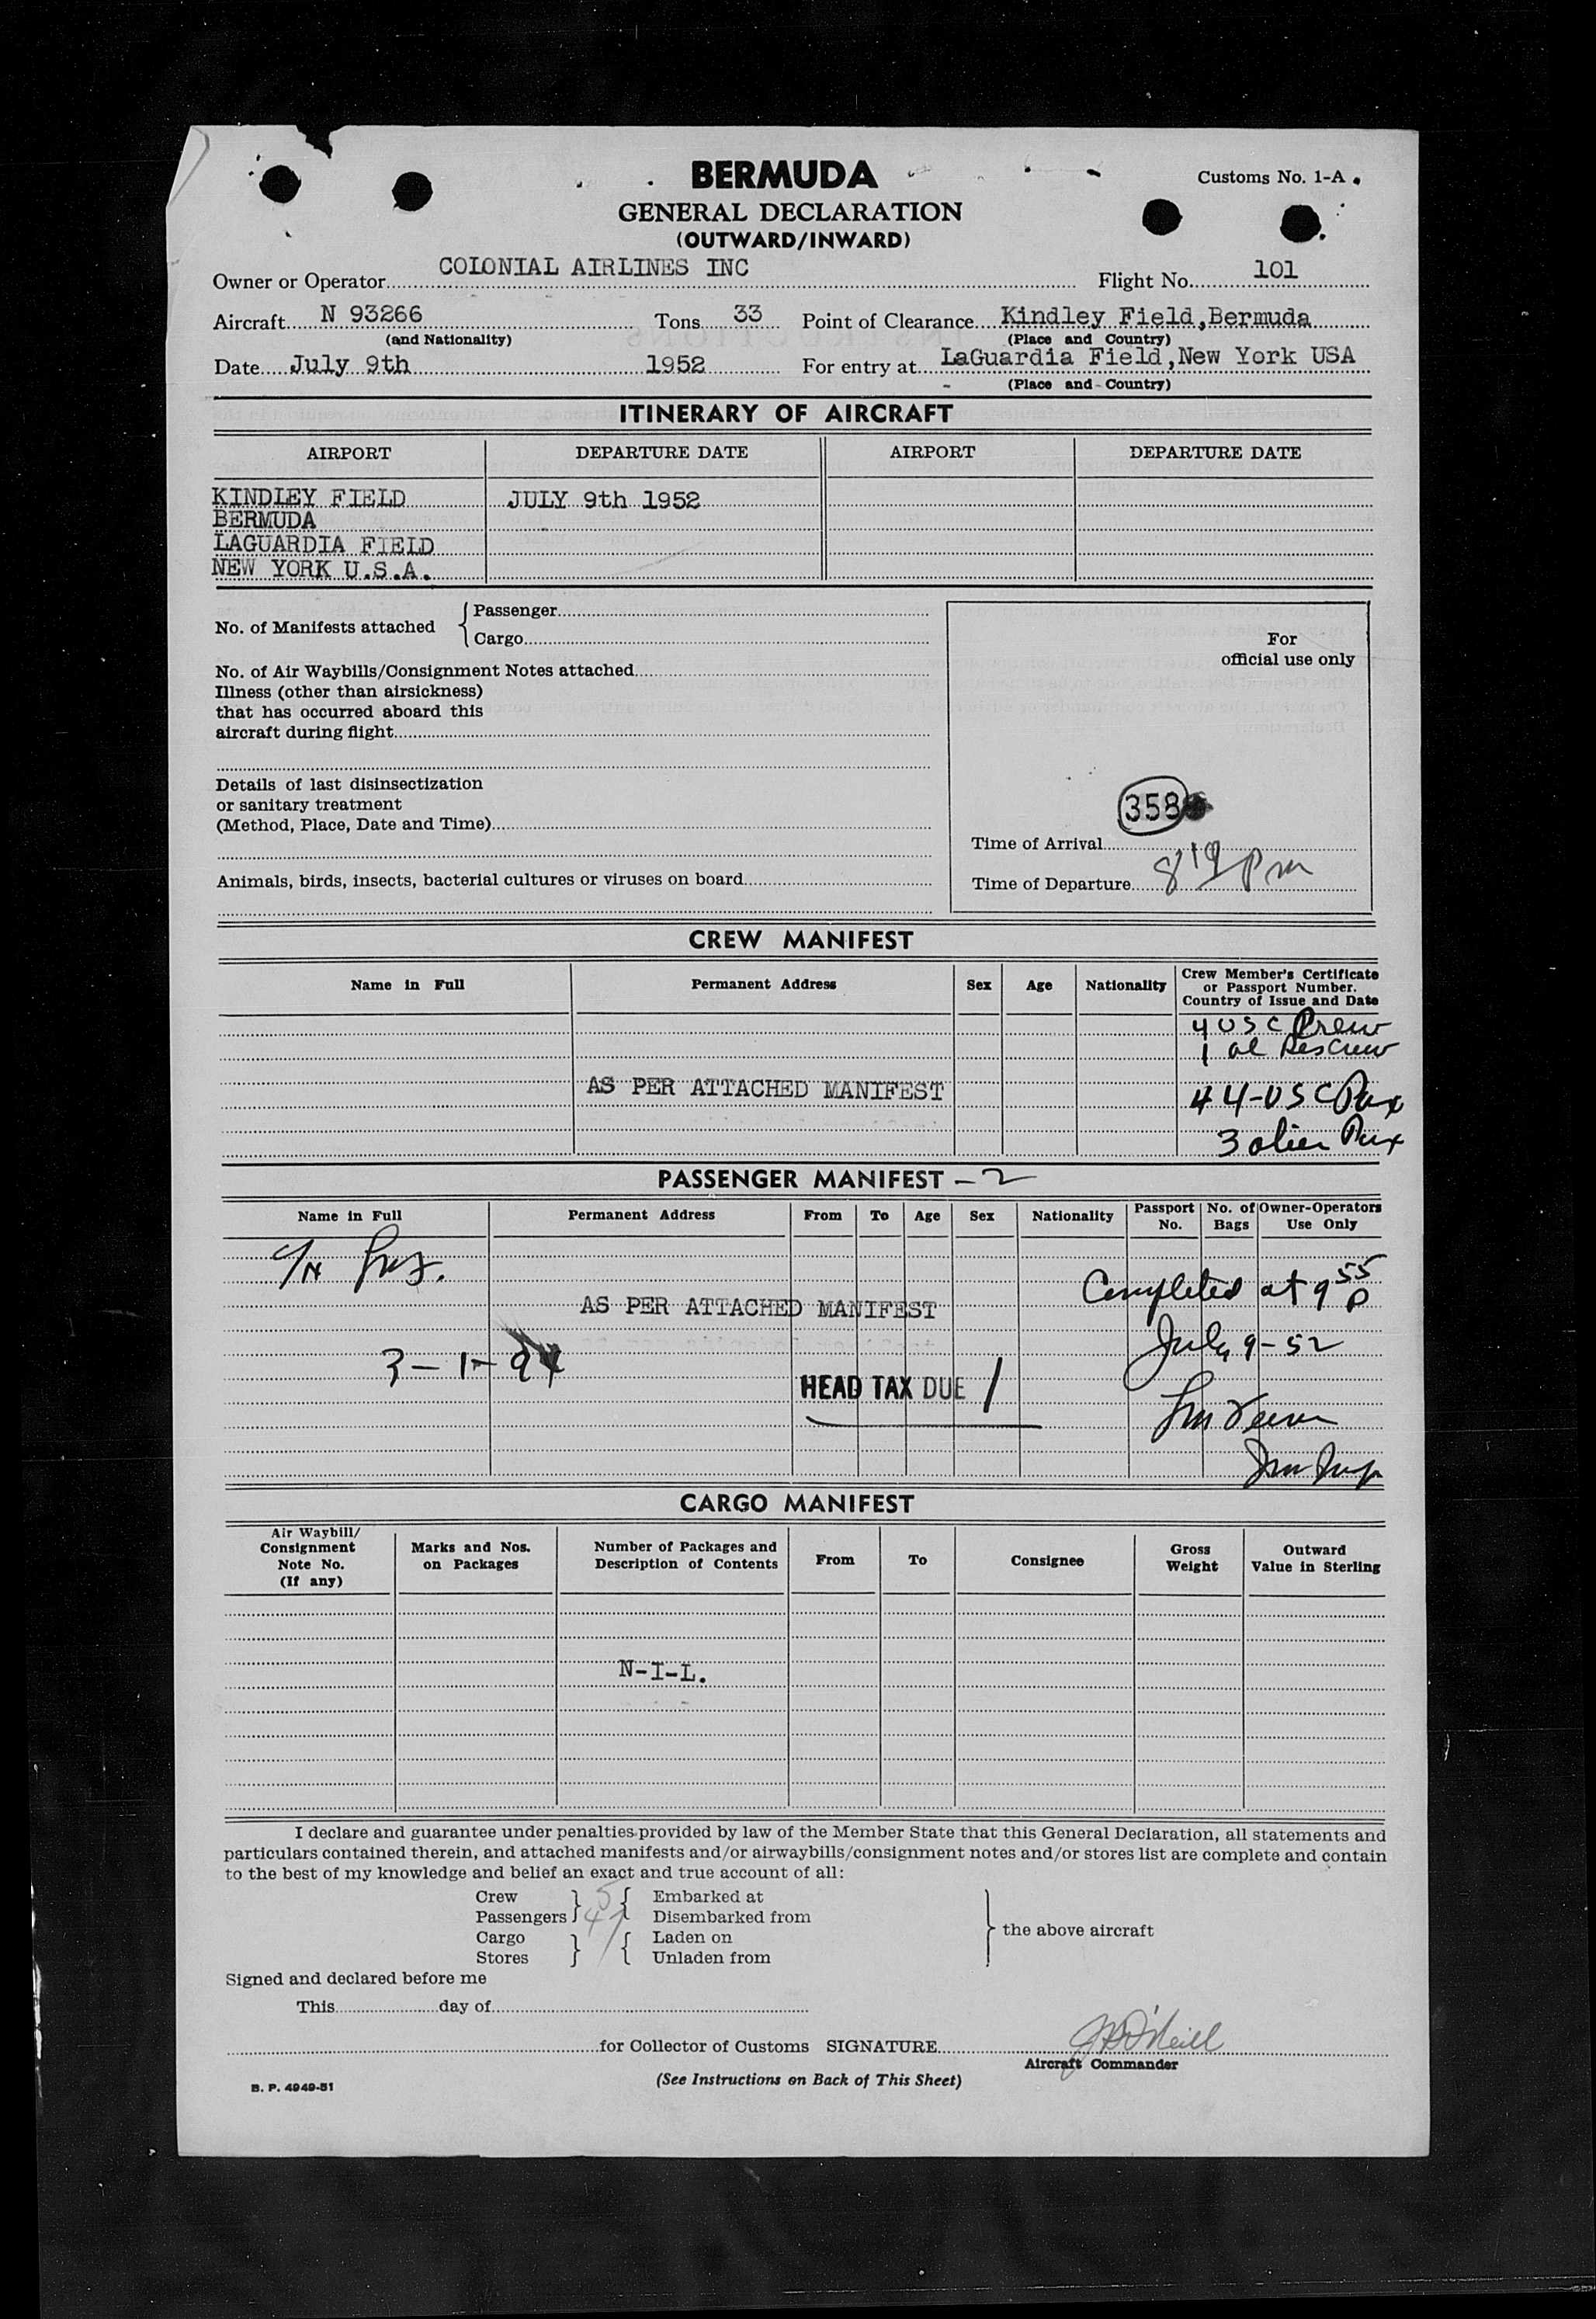 BERMUDA
Customs No. 1-A
GENERAL DECLARATION
(OUTWARD/INWARD)
Owner or Operator COLONIAL AIRLINES INC Flight No. 101
Aircraft N 93266 Tons 33 Point of Clearance Kindley Field, Bermuda
(and Nationality) (Place and Country)
Date July 9th 1952 For entry at LaGuardia Field, New York USA
(Place and Country)
ITINERARY OF AIRCRAFT
AIRPORT DEPARTURE DATE AIRPORT DEPARTURE DATE
KINDLEY FIELD JULY 9th 1952
BERMUDA
LAGUARDIA FIELD
NEW YORK U.S.A.
No. of Manifests attached { Passenger
Cargo
For
official use only
No. of Air Waybills/Consignment Notes attached
Illness (other than airsickness)
that has occurred aboard this
aircraft during flight
Details of last disinsectization
or sanitary treatment
(Method, Place, Date and Time)
358
Time of Arrival
Animals, birds, insects, bacterial cultures or viruses on board
Time of Departure 8 19 pm
CREW MANIFEST
Name in Full Permanent Address Sex Age Nationality Crew Member's Certificate
or Passport Number.
Country of Issue and Date
4 USC Crew
1 al Res Crew
AS PER ATTACHED MANIFEST
44-USC Pax
3 alien Pax
PASSENGER MANIFEST - 2
Name in Full Permanent Address From To Age Sex Nationality Passport No. No. of Bags Owner-Operators Use Only
Completed at 9 55 P
AS PER ATTACHED MANIFEST
July 9-52
3-1-
HEAD TAX DUE 1
CARGO MANIFEST
Air Waybill/
Consignment
Note No.
(If any)
Marks and Nos.
on Packages
Number of Packages and
Description of Contents
From
To
Consignee
Gross
Weight
Outward
Value in Sterling
N-I-L.
I declare and guarantee under penalties provided by law of the Member State that this General Declaration, all statements and
particulars contained therein, and attached manifests and/or airwaybills/consignment notes and/or stores list are complete and contain
to the best of my knowledge and belief an exact and true account of all:
Crew } 5 { Embarked at
Passengers } 47 { Disembarked from
Cargo } { Laden on
Stores } { Unladen from
} the above aircraft
Signed and declared before me
This day of
for Collector of Customs SIGNATURE J O'Neill
Aircraft Commander
(See Instructions on Back of This Sheet)
B. P. 4949-51